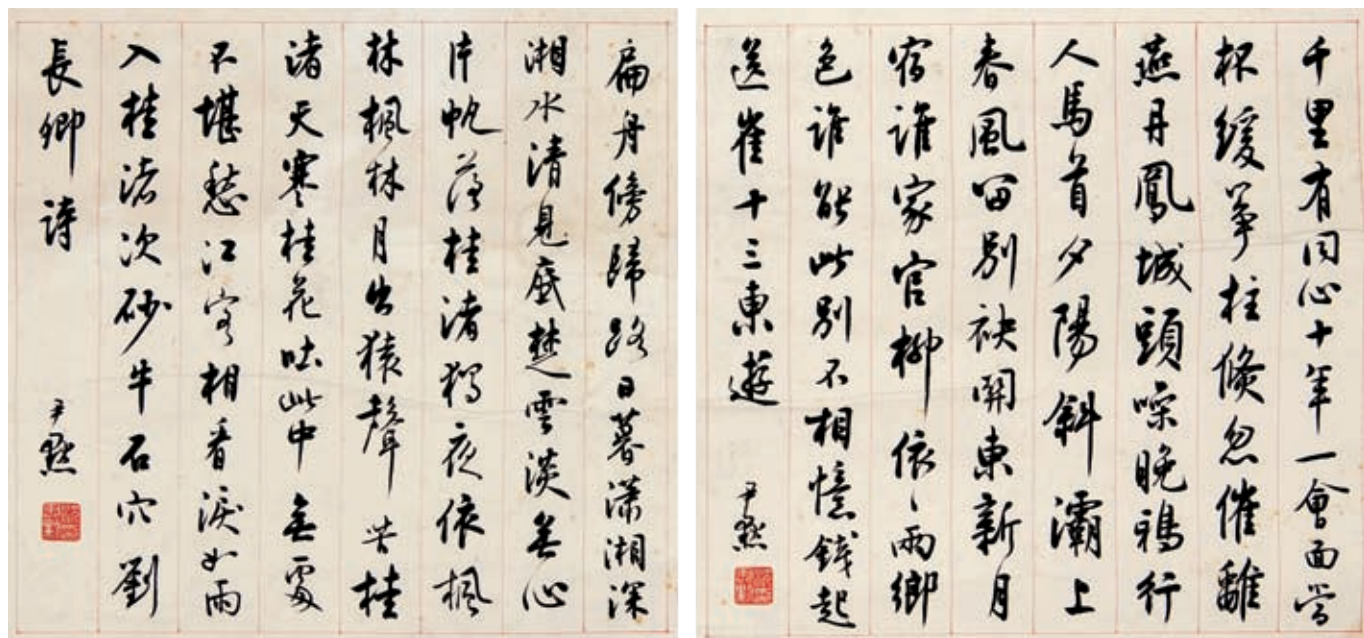 千里有同心十年一會面當
杯緩箏柱倏忽催離
燕丹鳳城頭噪晚鴉行
人馬首夕陽斜灞上
春風留別袂關東新月
宿誰家官柳依〻兩鄉
色誰能此別不相憶錢起
送崔十三東遊
尹默
扁舟傍歸路日暮瀟湘深
湘水清見底楚雲淡無心
片帆落桂渚獨夜依楓
林楓林月出猿聲苦桂
渚天寒桂花吐此中無處
不堪愁江客相看淚如雨
入桂渚次砂牛石穴劉
長卿詩
尹默